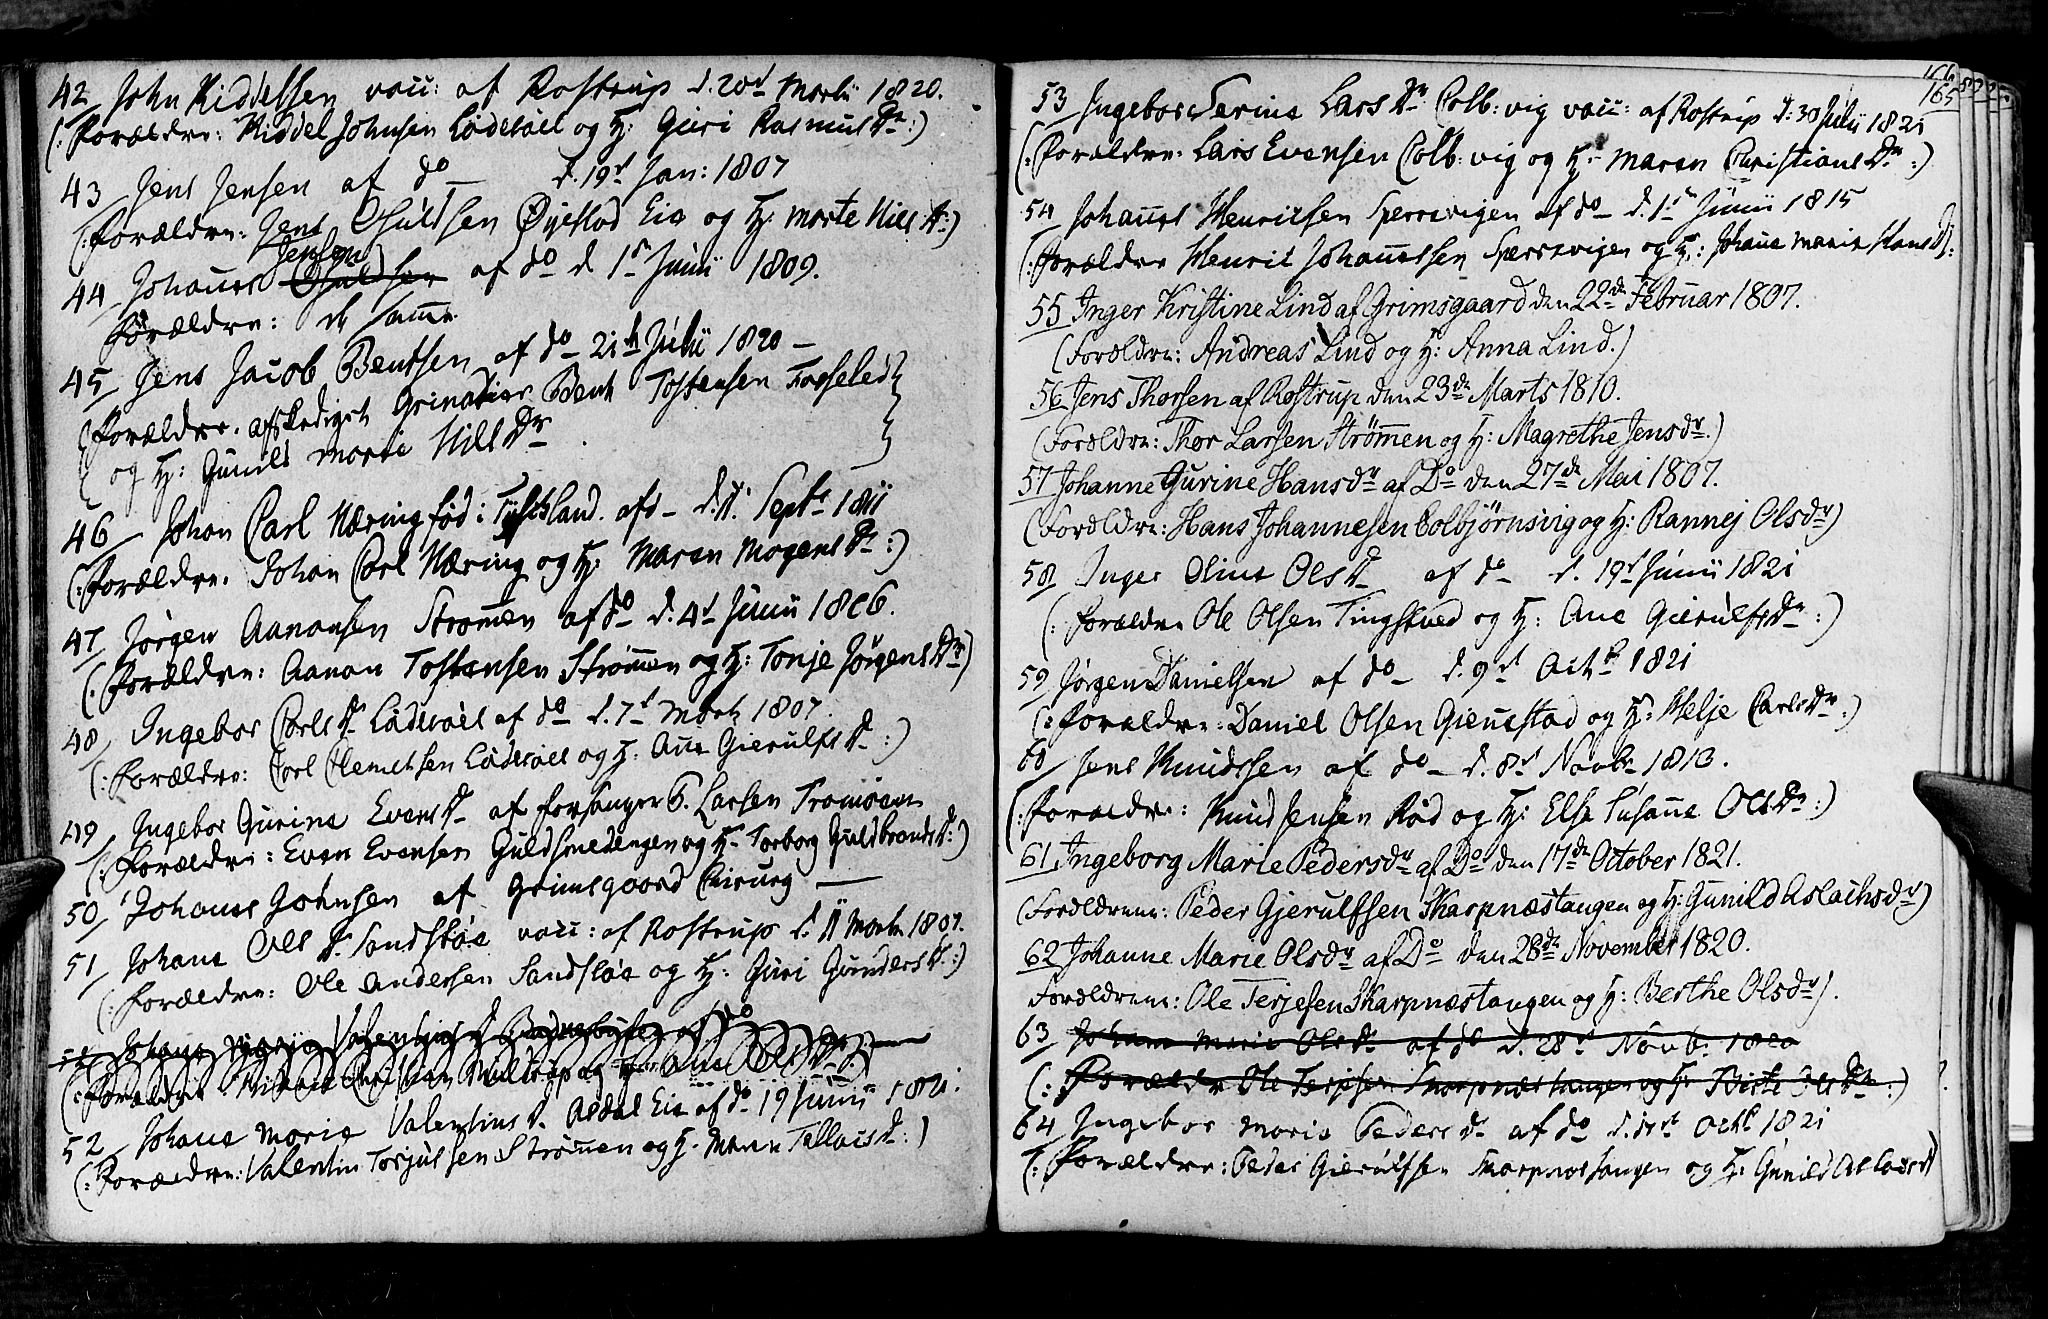 42 John Kiddelsen vacc: af Rostrup d. 20d Martii 1820.
(: Forældre: Kiddel Johnsen Lødesøel og H: Guri RasmusDr :)
43 Jens Jensen af do d. 19d Jan: 1807
(: Forældre: Jens Gulds​en Øyestad Eie og H: Marte NilsDr :)
44 Johannes Jensen af do d 1st Junii 1809.
Forældre: de samme
45 Jens Jacob Bentsen af do 21d Julii 1820
(Forældre. afskediget Grenadier Bent Tostensen Fosseled
og H: Gunild Marie NilsDr
46 Johan Carl Næring fød i Tydskland. af d d. 11. Septr 1811
(: Forældre. Johan Carl Næring og H: Maren MogensDr :)
47 Jørgen Aanonsen Strømmen af do d. 4d Junii 1806.
(: Forældre: Aanon Tostensen Strømmen og H: Tonje JørgensDr)
48 Ingebor CarlsDr Lødesøel af do d. 7d Marts 1807.
(: Forældre: Carl Clemetsen Lødesøel og H: Anne GierulfsDr :)
49 Ingebor Gurine EvensDr af Forsanger T. Larsen Tromøen
(: Forældre: Even Evensen Guldsmedengen og H. Torborg GuldbrandsDr :)
50 Johannes Johnsen af Grimsgaard Chirurg
51 Johane OlsDr Sandsløe vacc: af Rostrup d. 11 Marts 1807.
(: Forældre: Ole Andersen Sandsløe og H: Guri GundersDr :)
Johane Marie Valentins af do
(: Forældre Christian og
52 Johane Marie ValentinsDr Asdal Eie af do 19 Junii 1821.
(: Forældre: Valentin Torjulsen Strømmen og H. Maren TellacsDr :)
166
165
53 Ingebor Serine LarsDr Colb: vig vacc: af Rostrup d: 30 Julii 1821
(: Forældre. Lars Evensen Colb: vig og H: Maren ChristiansDr :)
54 Johannes Henricsen Spersvigen af do d. 1st Junii 1815
(: Forældre Henric Johannessen Spersvigen og H: Johane Marie HansD:
55 Inger Kristine Lind af Grimsgaard den 22de Februar 1807.
(Forældre: Andreas Lind og H: Anna Lind.)
56 Jens Thorsen af Rostrup den 23de Marts 1810.
(Forældre: Thor Larsen Strømmen og H: Magrethe Jensdr.)
57 Johanne Gurine Hansdr af Do den 27de Mai 1807.
(Forældre: Hans Johannesen Colbjørnsvig og H: Rannej Olsdr)
58 Inger Oline OlsDr af do d. 19d Junii 1821
(: Forældre Ole Olsen Tingstved og H: Ane GierulfsDr :)
59 Jørgen Danielsen af do d. 9d Octb 1821
(: Forældre: Daniel Olsen Giennestad og H: Helje CarlsDr :)
60 Jens Knudssen af do d. 8d Novbr 1813.
(: Forældre: Knud Jensen Rød og H: Else Susanne OlsDr :)
61 Ingeborg Marie Pedersdr af Do den 17de October 1821.
(Forældrene: Peder Gjerulfsen Skarpnæstangen og H: Gunild Aslachsdr)
62 Johanne Marie Olsdr af Do den 28de November 1820.
Forældrene: Ole Terjesen Skarpnæstangen og H: Berthe Olsdr).
63 Johane Marie OlsDr af do d. 28d Novb: 1820
(: Forældre Ole Terjesen Skarpnæstangen og H: Birte OlsDr :)
64 Ingebor Marie PedersDr af do d. 17d Octb 1821
(: Forældre: Peder Gierulfsen Skarpnæstangen og H: Gunild AslacsD